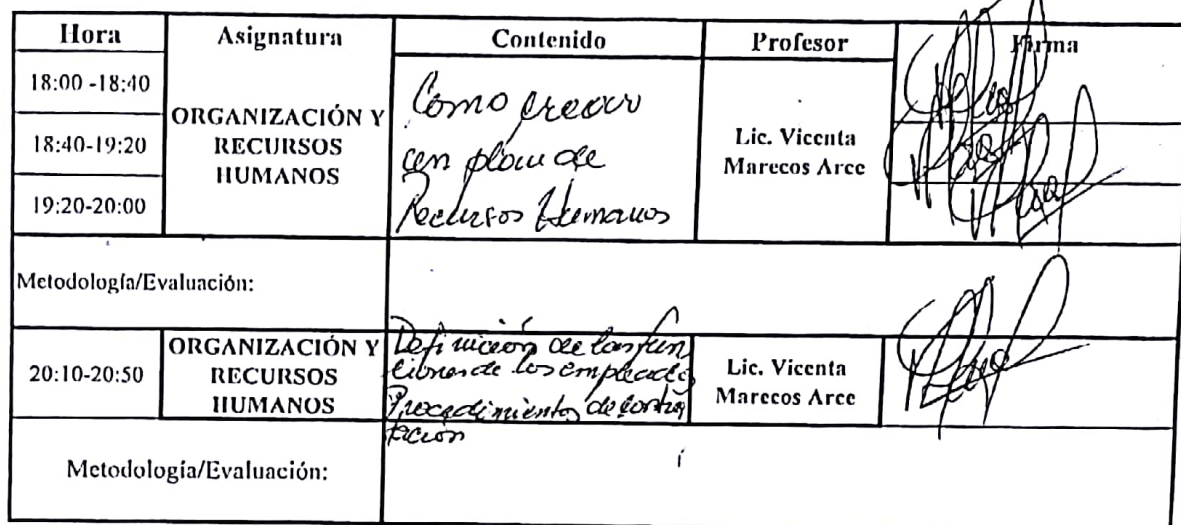 Hora Asignatura Contenido Profesor Firma
18:00 -18:40
18:40-19:20
19:20-20:00
ORGANIZACIÓN Y
RECURSOS
HUMANOS
Como crear
un plan de
Recursos Humanos
Lic. Vicenta
Marecos Arce
Metodología/Evaluación:
20:10-20:50
ORGANIZACIÓN Y
RECURSOS
HUMANOS
Definicion de las fun
ciones de los empleados
Procedimientos de contra
tacion
Lic. Vicenta
Marecos Arce
Metodología/Evaluación: